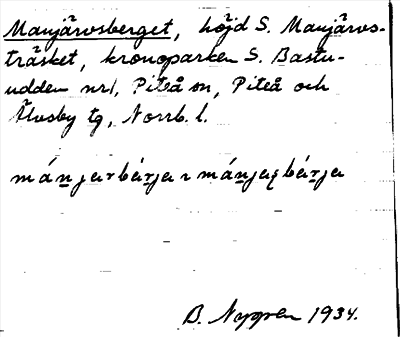 Manjärvsberget, höjd S. Manjärvs-
träsket, kronoparken S. Bastu-
udden nr 1, Piteå sn, Piteå och
Älvsby tg, Norrb. l.
mánjarbárja r mánjaʂbárja
B. Nygren 1934.